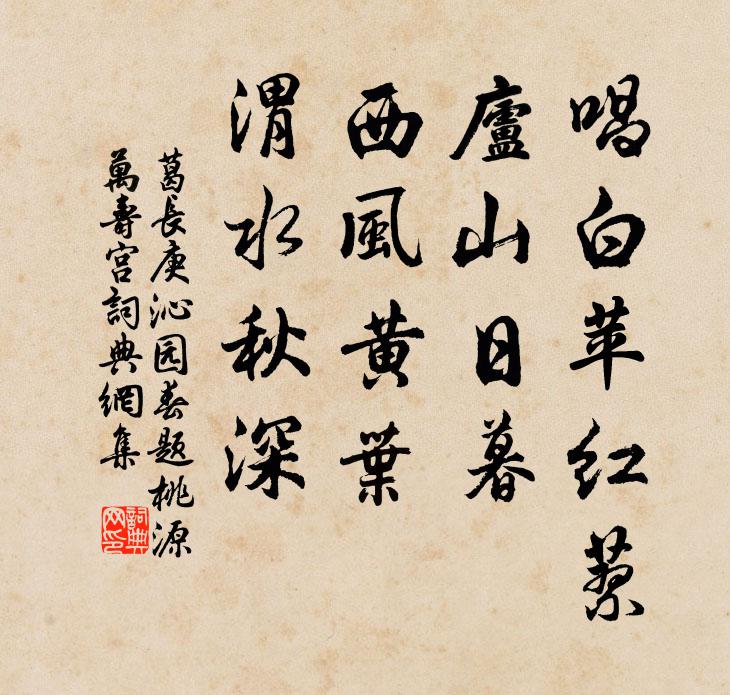 唱白苹紅蓼
廬山日暮
西風黃葉
渭水秋深
葛長庚沁园春題桃源
萬壽宮詞典網集
詞典网印